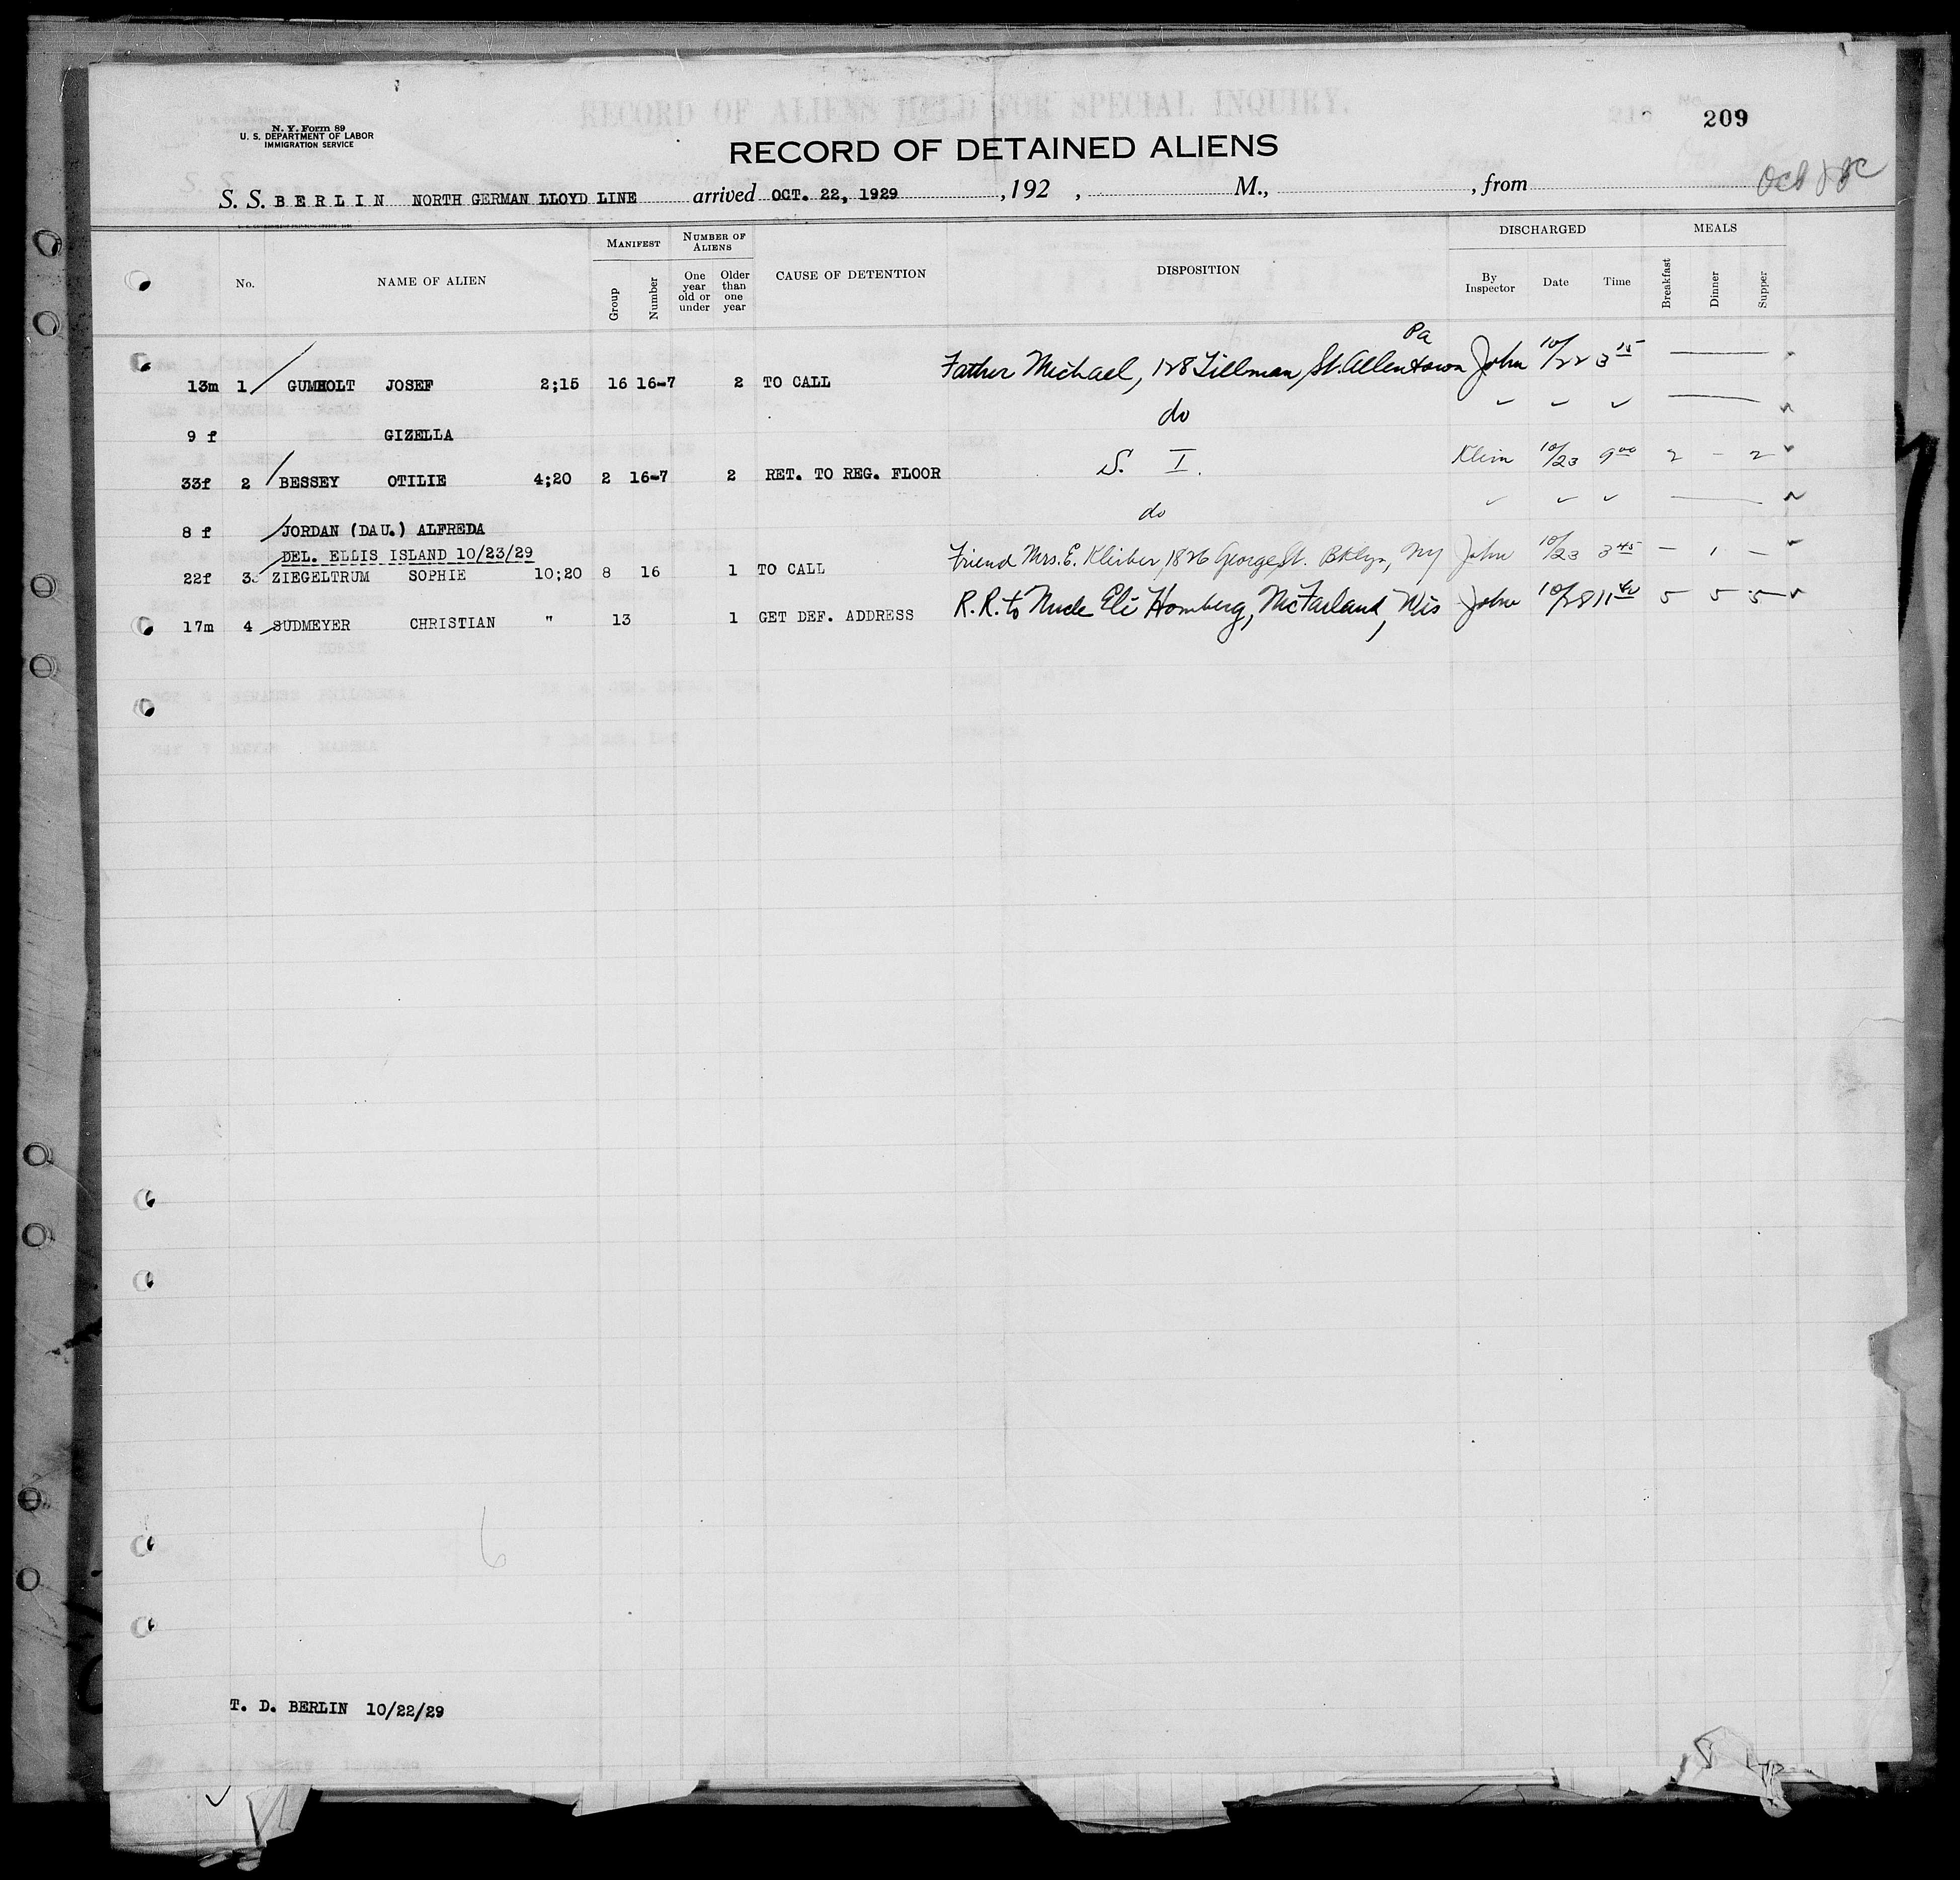 N. Y. Form 89
U. S. DEPARTMENT OF LABOR
IMMIGRATION SERVICE
RECORD OF ALIENS HELD FOR SPECIAL INQUIRY.
209
RECORD OF DETAINED ALIENS
S. S. BERLIN NORTH GERMAN LLOYD LINE arrived OCT. 22, 1929, 192 , M., , from
No. NAME OF ALIEN MANIFEST Group Number NUMBER OF ALIENS One year old or under Older than one year CAUSE OF DETENTION DISPOSITION DISCHARGED By Inspector Date Time MEALS Breakfast Dinner Supper
Pa
13m 1 GUMHOLT JOSEF 2;15 16 16-7 2 TO CALL Father Michael, 128 Tillman St. Allentown John 10/22 3 15
9 f GIZELLA do
33f 2 BESSEY OTILIE 4;20 2 16-7 2 RET. TO REG. FLOOR S. I. Klein 10/23 9 00 2 - 2
8 f JORDAN (DAU.) ALFREDA do
DEL. ELLIS ISLAND 10/23/29
22f 3 ZIEGELTRUM SOPHIE 10;20 8 16 1 TO CALL Friend Mrs. E. Kleiber, 1826 George St. Bklyn, NY John 10/23 3 45 - 1 -
17m 4 SUDMEYER CHRISTIAN " 13 1 GET DEF. ADDRESS R.R. to Uncle Eli Homberg, McFarland, Wis John 10/28 11 40 5 5 5
6
T. D. BERLIN 10/22/29